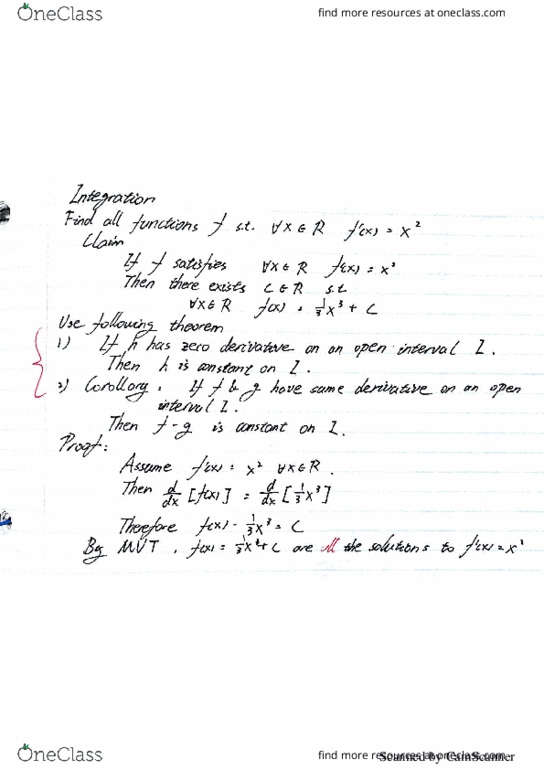 OneClass
find more resources at oneclass.com
Integration
Find all functions f s.t. ∀x∈R f'(x) = x²
Claim
If f satisfies ∀x∈R f'(x) = x²
Then there exists C∈R s.t.
∀x∈R f(x) = 1/3 x³ + C
Use following theorem
1) If h has zero derivative on an open interval I.
Then h is constant on I.
2) Corollory: If f & g have same derivative on an open
interval I.
Then f-g is constant on I.
Proof:
Assume f'(x) = x² ∀x∈R.
Then d/dx [f(x)] = d/dx [1/3 x³]
Therefore f(x) - 1/3 x³ = C
By MVT, f(x) = 1/3 x³ + C are all the solutions to f'(x) = x²
OneClass
find more resources at oneclass.com
Scanned by CamScanner